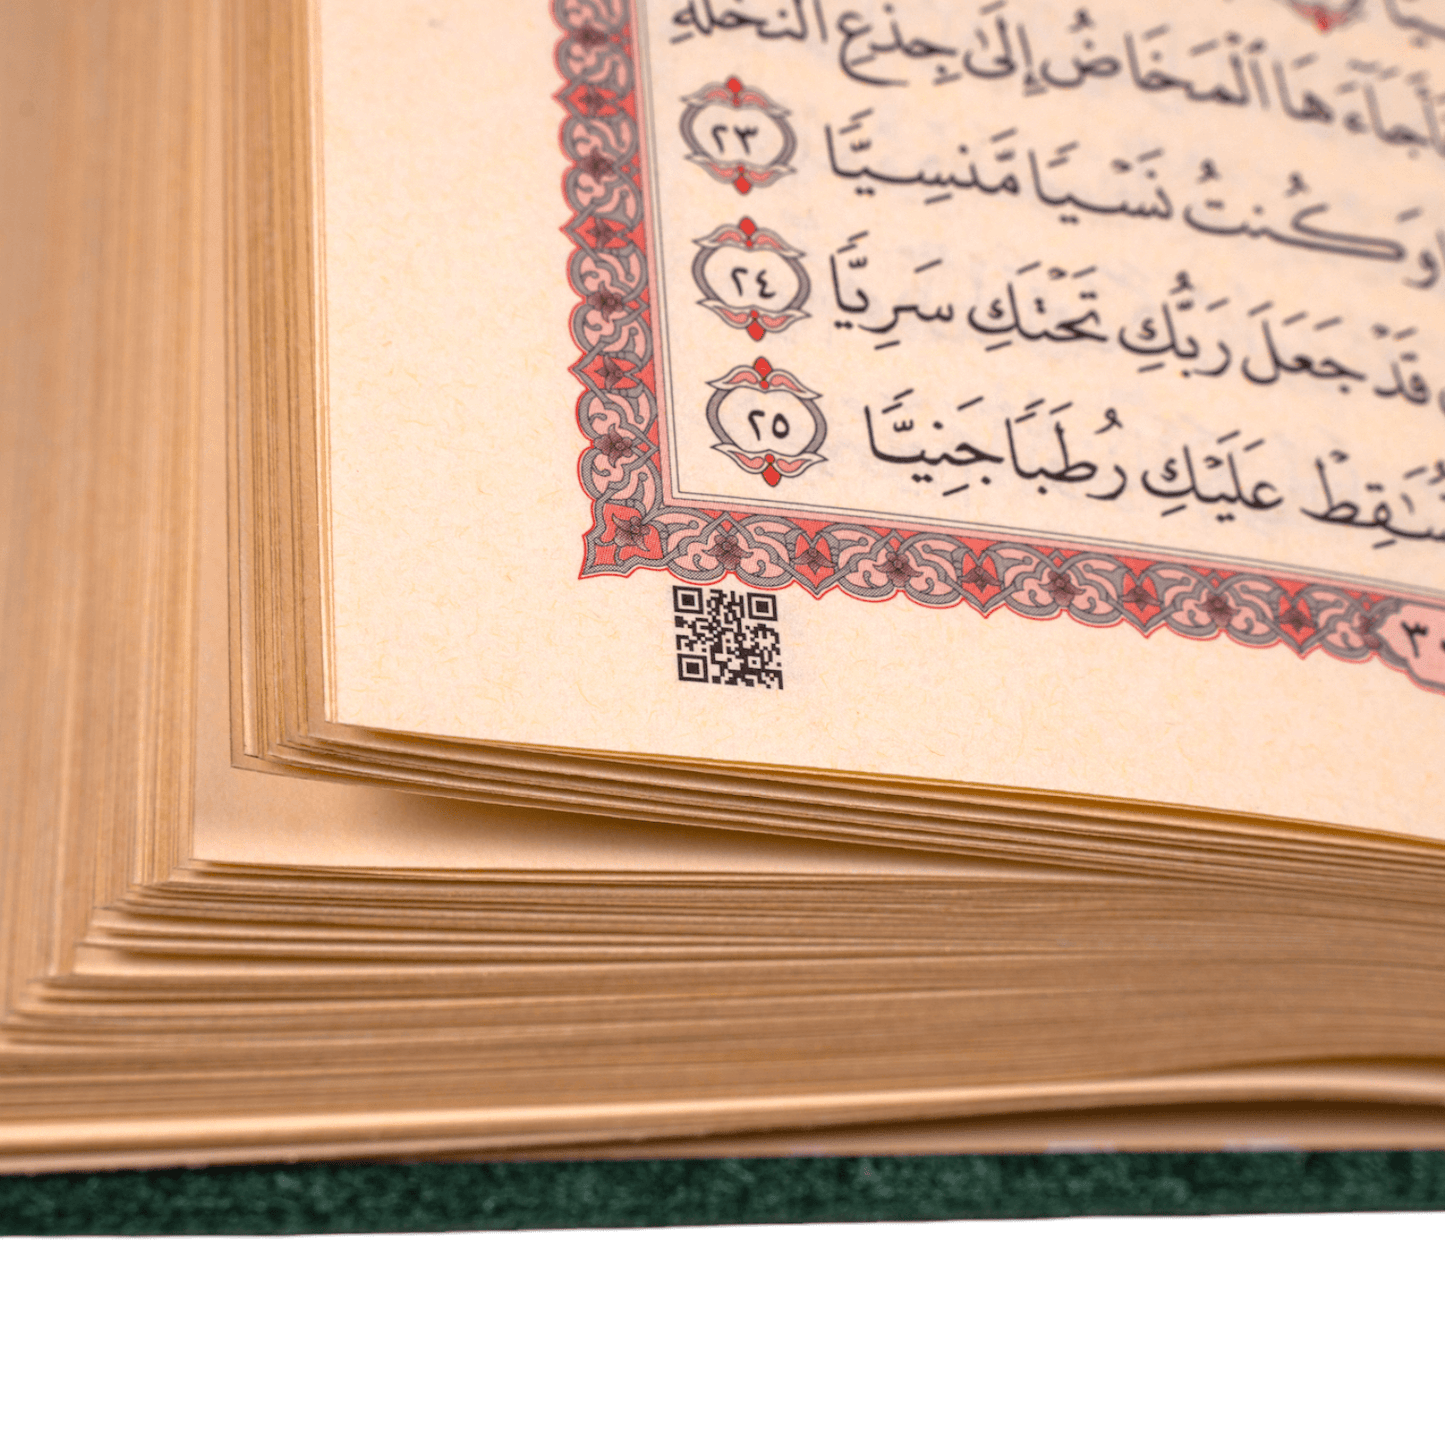 أَجَآءَهَا ٱلْمَخَاضُ إِلَىٰ جِذْعِ ٱلنَّخْلَةِ
وَكُنتُ نَسْيًا مَّنسِيًّا ٢٣
قَدْ جَعَلَ رَبُّكِ تَحْتَكِ سَرِيًّا ٢٤
سَٰقِطْ عَلَيْكِ رُطَبًا جَنِيًّا ٢٥